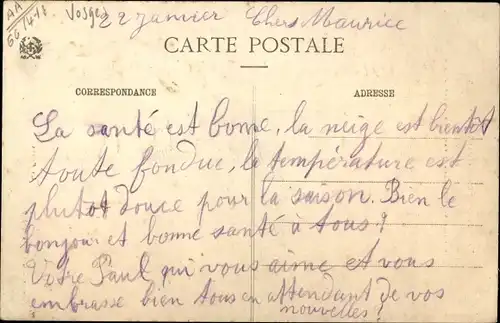 AA
Vosges
22 janvier Chers Maurice
CARTE POSTALE
CORRESPONDANCE
ADRESSE
La santé est bonne, la neige est bientôt
toute fondue, la température est
plutot douce pour la saison. Bien le
bonjour et bonne santé à tous!
Votre Paul qui vous aime et vous
embrasse bien tous en attendant de vos
nouvelles!